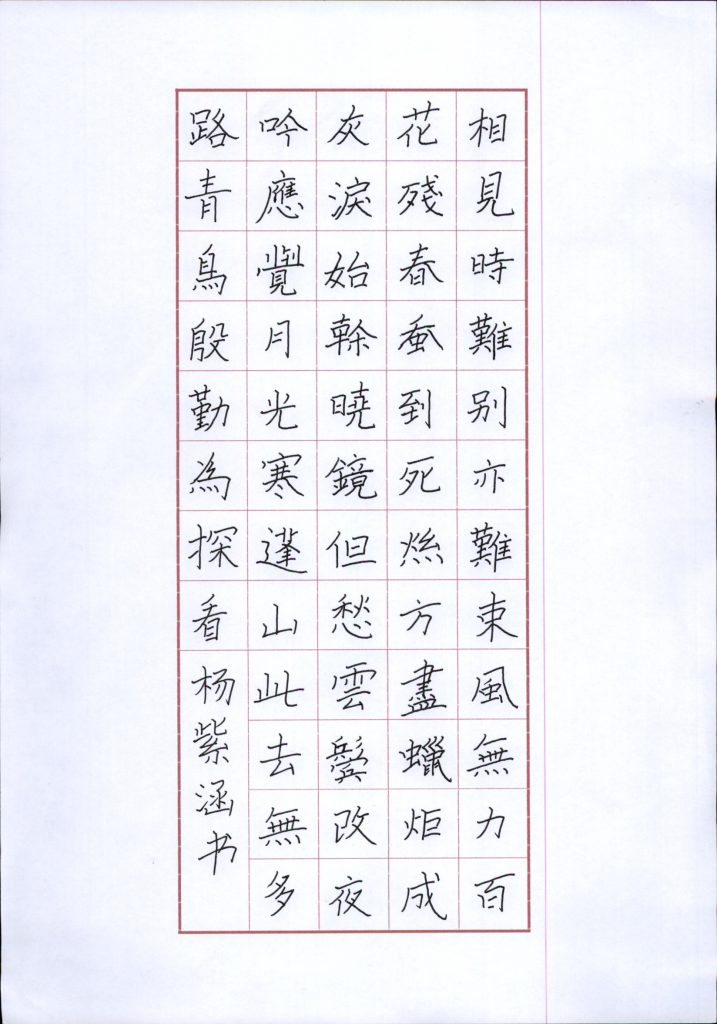 相見時難别亦難東風無力百
花殘春蚕到死絲方盡蠟炬成
灰淚始幹曉鏡但愁雲鬢改夜
吟應覺月光寒蓬山此去無多
路青鳥殷勤為探看杨紫涵书